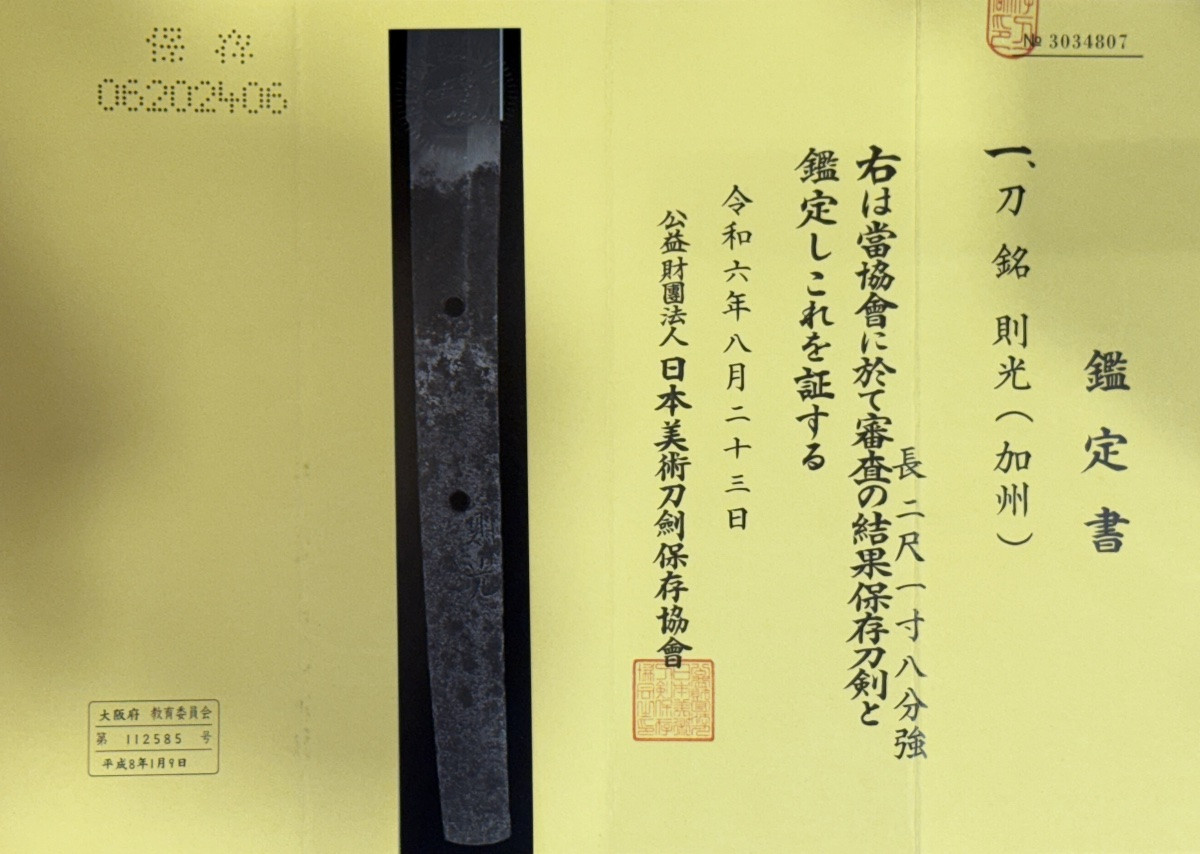 № 3034807
鑑定書
一、刀 銘 則光(加州)
長二尺一寸八分強
右は當協會に於て審査の結果保存刀剣と
鑑定しこれを証する
令和六年八月二十三日
公益財團法人日本美術刀劍保存協會
則光
保存
06202406
大阪府 教育委員会
第 112585 号
平成8年1月9日